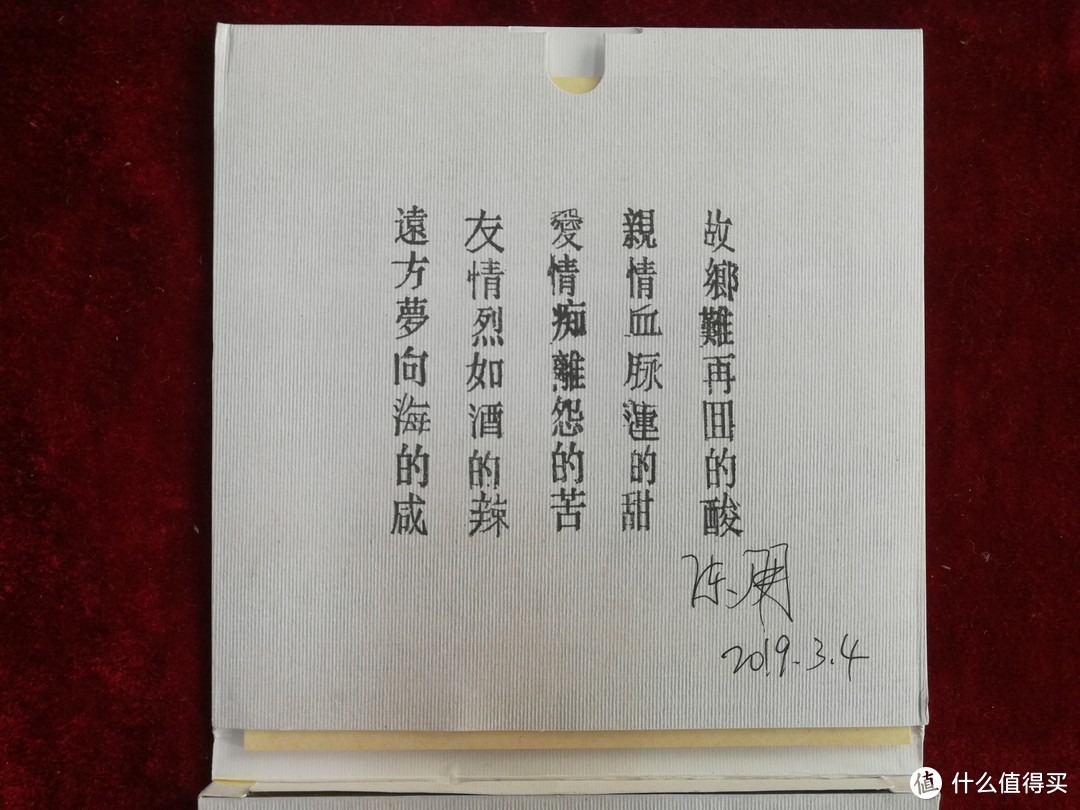 故鄉難再囬的酸
親情血脉蓮的甜
愛情痴離怨的苦
友情烈如酒的辣
遠方夢向海的咸
2019.3.4
值 什么值得买